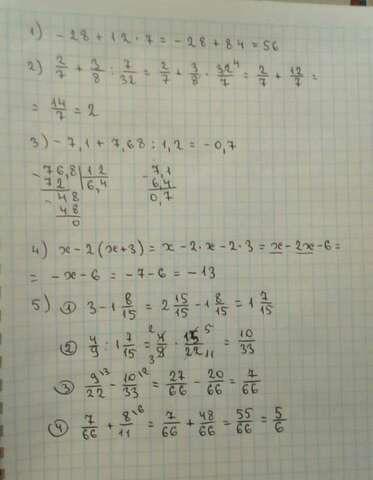 1) - 28 + 12 · 7 = - 28 + 84 = 56
2) 2/7 + 3/8 : 7/32 = 2/7 + 3/8 · 32⁴/7 = 2/7 + 12/7 =
= 14/7 = 2
3) - 7,1 + 7,68 : 1,2 = -0,7
- 76,8 | 12 - 7,1
72 | 6,4 6,4
- 48 0,7
48
0
4) x - 2(x+3) = x - 2·x - 2·3 = x - 2x - 6 =
= -x - 6 = -7 - 6 = -13
5) ① 3 - 1 8/15 = 2 15/15 - 1 8/15 = 1 7/15
② 4/9 : 1 7/15 = ²4/9₃ · 15⁵/22₁₁ = 10/33
③ 9\³/22 - 10\²/33 = 27/66 - 20/66 = 7/66
④ 7/66 + 8\⁶/11 = 7/66 + 48/66 = 55/66 = 5/6